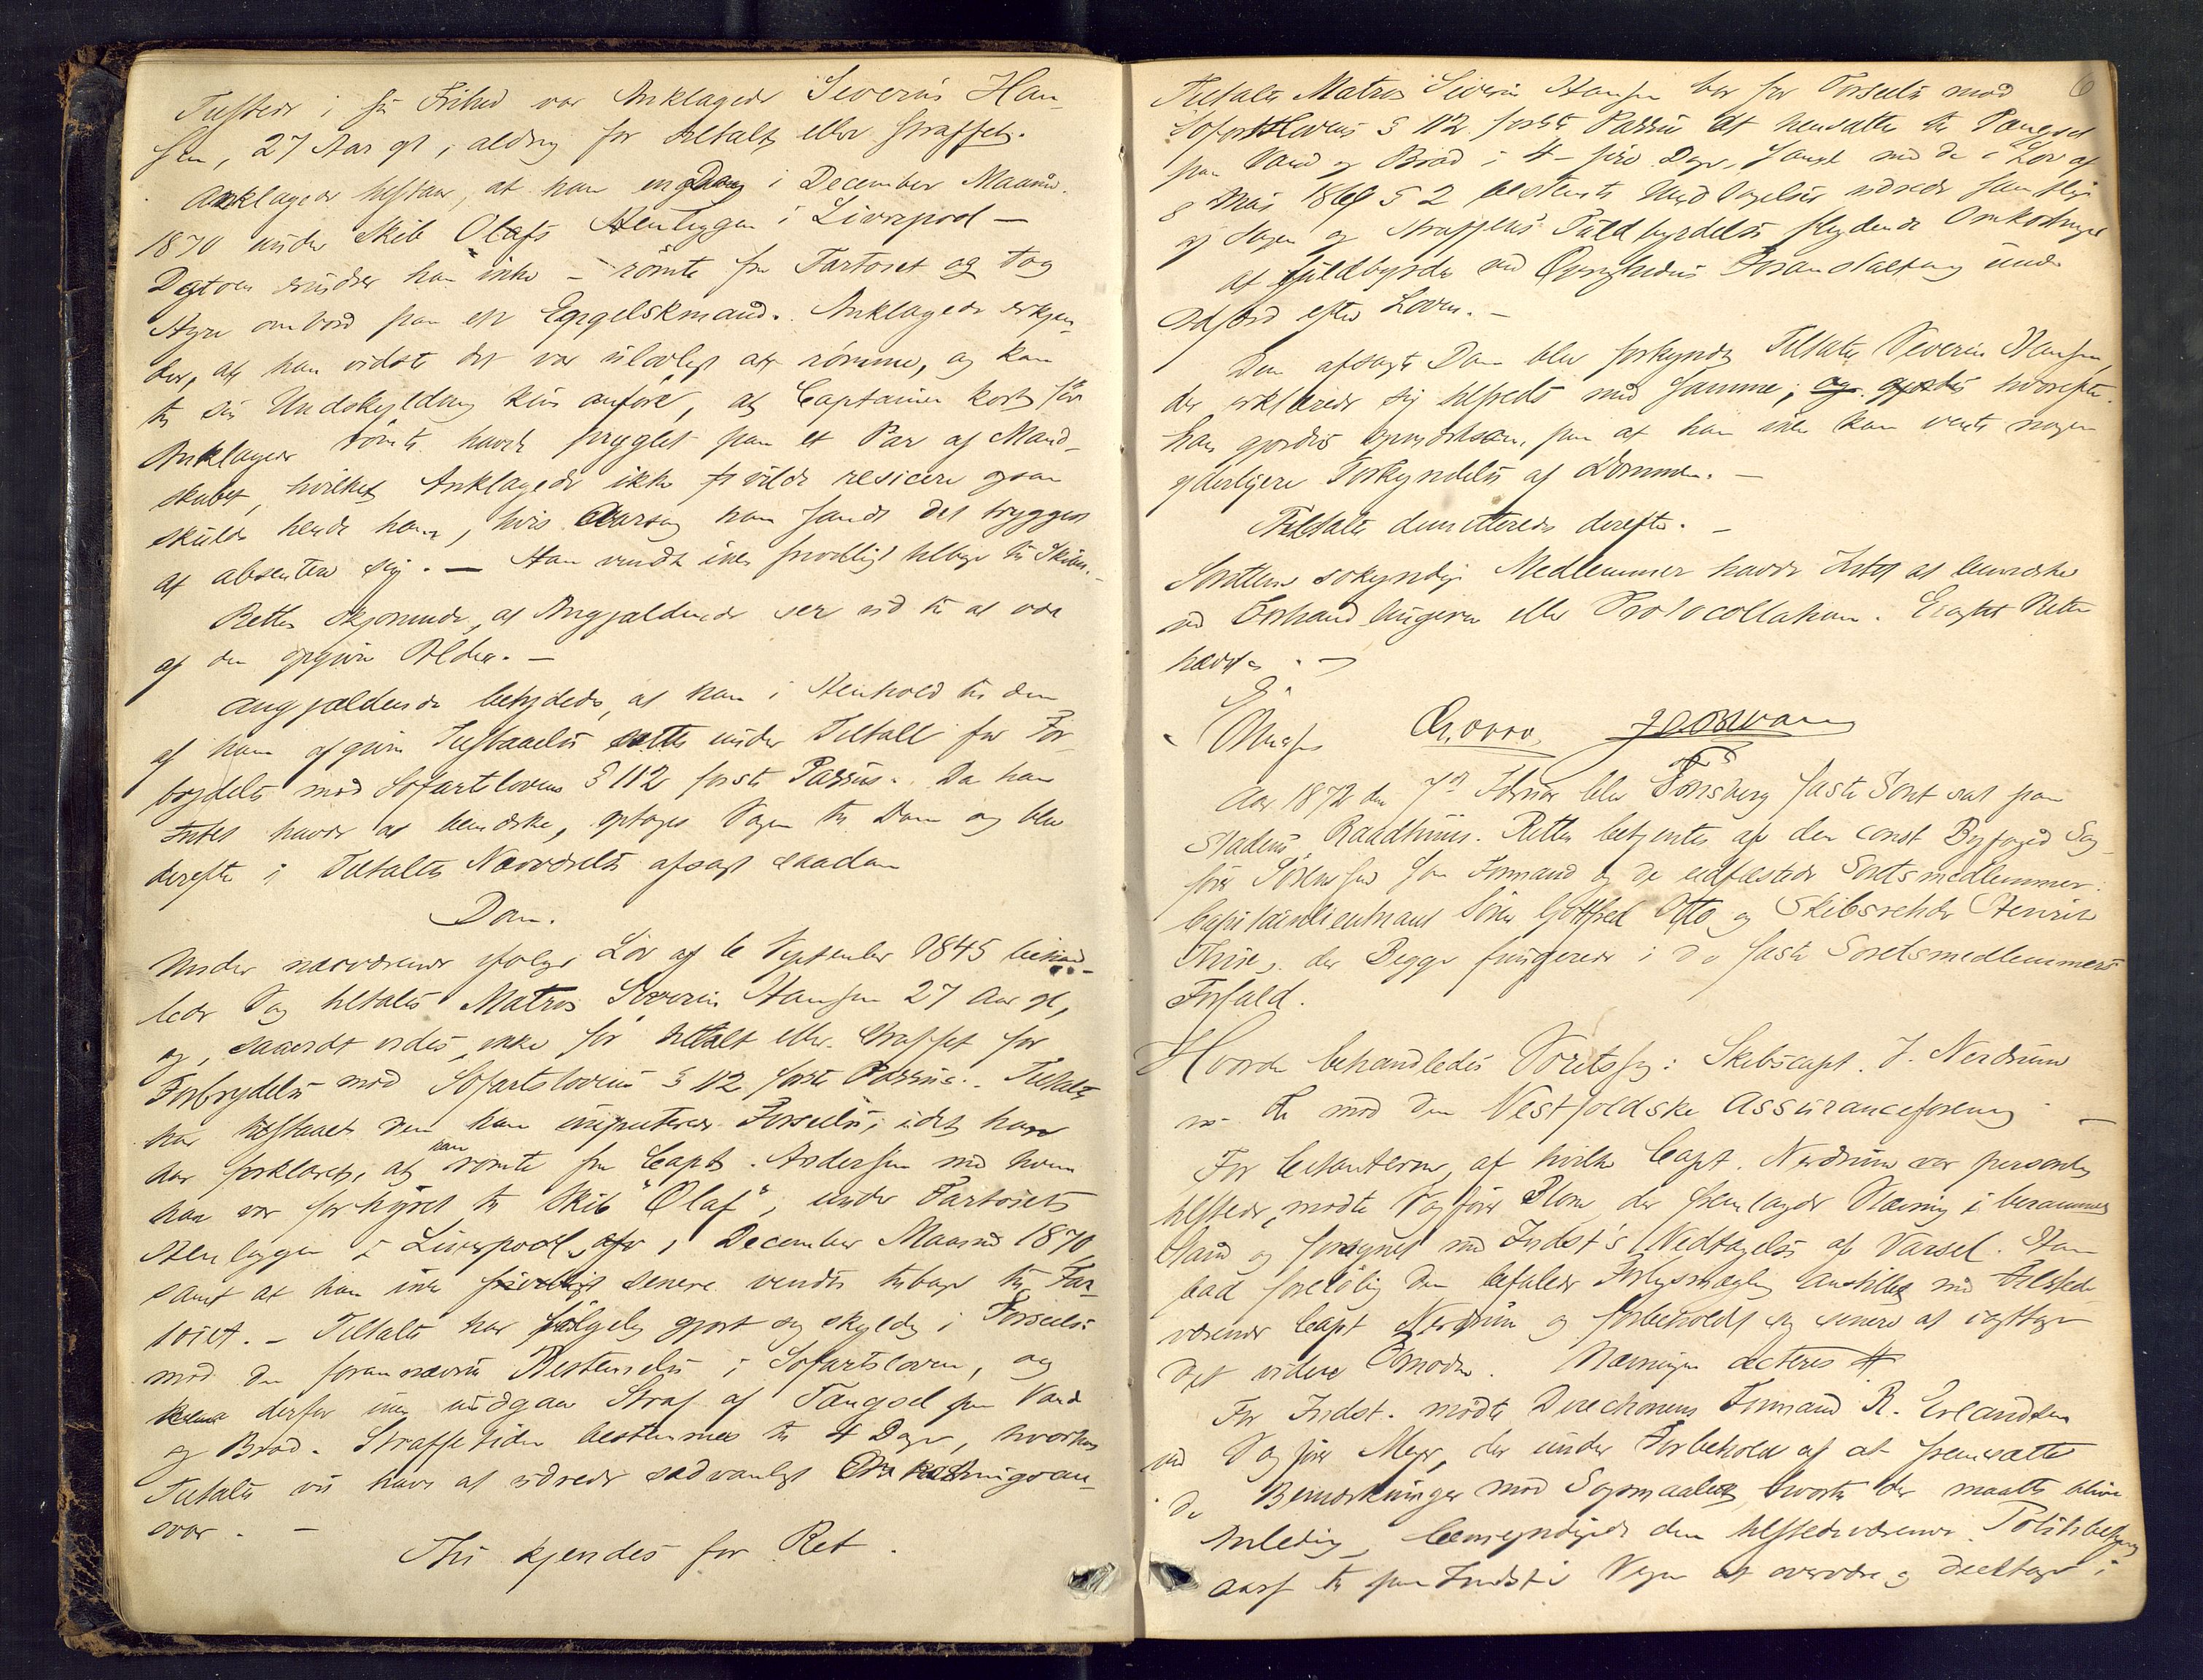 Tilstede i fri Frihed var Anklagede Severin Han-
sen, 27 Aar gl, aldrig før tiltalt eller straffet.
Anklagede tilstaar, at han en Dag i December Maaned
1870 under Skib Olafs Henliggen i Liverpool —
Datoen husker han ikke — rømte fra Fartøiet og tog
Hyre ombord paa en Engelskmand. Anklagede erkjen-
der, at han vidste det var ulovligt at rømme, og kan
til sin Undskyldning kun anføre, at Captainen kort før
Anklagede rømte havde pryglet paa et Par af Mand-
skabet, hvilket Anklagede ikke vilde resicere ogsaa
skulde hende ham, hvis Aarsag han fandt det tryggest
at absentere sig. — Han vendte ikke frivilligt tilbage til Skibet.
Retten skjønnede, at Angjældende ser ud til at være
af den opgivne Alder. —
Angjældende betydedes, at han i Henhold til den
af ham afgivne Tilstaaelse sattes under Tiltale for For-
brydelse mod Søfartslovens § 112 første Passus. Da han
Intet havde at bemærke, optoges Sagen til Dom og blev
derefter i Tiltaltes Nærværelse afsagt saadan
Dom.
Under nærværende ifølge Lov af 6 September 1845 behand-
lede Sag tiltales Matros Severin Hansen 27 Aar gl,
og, saavidt vides, ikke før tiltalt eller straffet for
Forbrydelse mod Søfartslovens § 112 første Passus. Tiltalte
har tilstaaet den ham imputerede Forseelse, idet han
har forklaret, at han rømte fra Capt. Andersen med hvem
han var forhyret til Skib "Olaf", under Fartøiets
Henliggen i Liverpool, i December Maaned 1870,
samt at han ikke frivilligt senere vendte tilbage til Far-
tøiet. — Tiltalte har følgelig gjort sig skyldig i Forseelse
mod den forannævnte Bestemmelse i Søfartsloven, og
derfor undgaa Straf af Fængsel paa Vand
og Brød. Straffetiden bestemmes til 4 Dage, hvorhos
Tiltalte vil have at udrede sædvanligt Omkostningsan-
svar. —
Thi kjendes for Ret.
6
Tiltalte Matros Severin Hansen bør for Forseelse mod
Søfartslovens § 112 første Passus at hensættes til Fængsel
paa Vand og Brød i 4 - fire Dage, samt med de i Lov af
8 Mai 1869 § 2 bestemte Undtagelser udrede samtlige
af Sagen og Straffens Fuldbyrdelse flydende Omkostninger
At fuldbyrdes ved Øvrighedens Foranstaltning under
Adfærd efter Loven. —
Den afsagte Dom blev forkyndt Tiltalte Severin Hansen,
der erklærede sig tilfreds med samme; hvorefter
han gjordes opmærksom paa at han ikke kan vente nogen
yderligere Forkyndelse af Dommen. —
Tiltalte demitteredes derefter. —
Søretten søkyndige Medlemmer havde Intet at bemærke
ved Forhandlingerne eller Protocollationen.
Retten
hævet. —
Aar 1872 den 7de Februar blev Tønsberg faste Søret sat paa
Stadens Raadhuus. Retten betjentes af den const Byfoged Sag-
fører som Formand og de edfæstede Søretsmedlemmer:
Søren Gottfred Otto og Skibsreder Henrik
der Begge fungerede i de faste Søretsmedlemmers
Forfald.
Hvorda behandledes Søretssag: Skibscapt. J. Nerdrum
m. fl. mod den Vestfoldske Assuranceforening —
For Citanterne, af hvilke Capt. Nerdrum var personlig
tilstede, mødte Sagfører Blom der fremlagde Stævning i berammet
Stand og forsynet med Indst's Vedtagelse af Varsel. Han
bad foreløbig den befalede Forligsmægling anstillet med tilstede-
værende Capt Nerdrum og forbeholdt sig senere at iagttage
det videre Fornødne. Stævningen acteres
For Indst. mødte Directionens Formand R. Erlandsen
ved Sagfører Meyer, der under Forbehold af at fremsætte
de Bemærkninger mod Søgsmaalet, hvortil der maatte blive
Anledning, bemyndigede den tilstedeværende
til paa Indst's Vegne at overvære og deeltage i